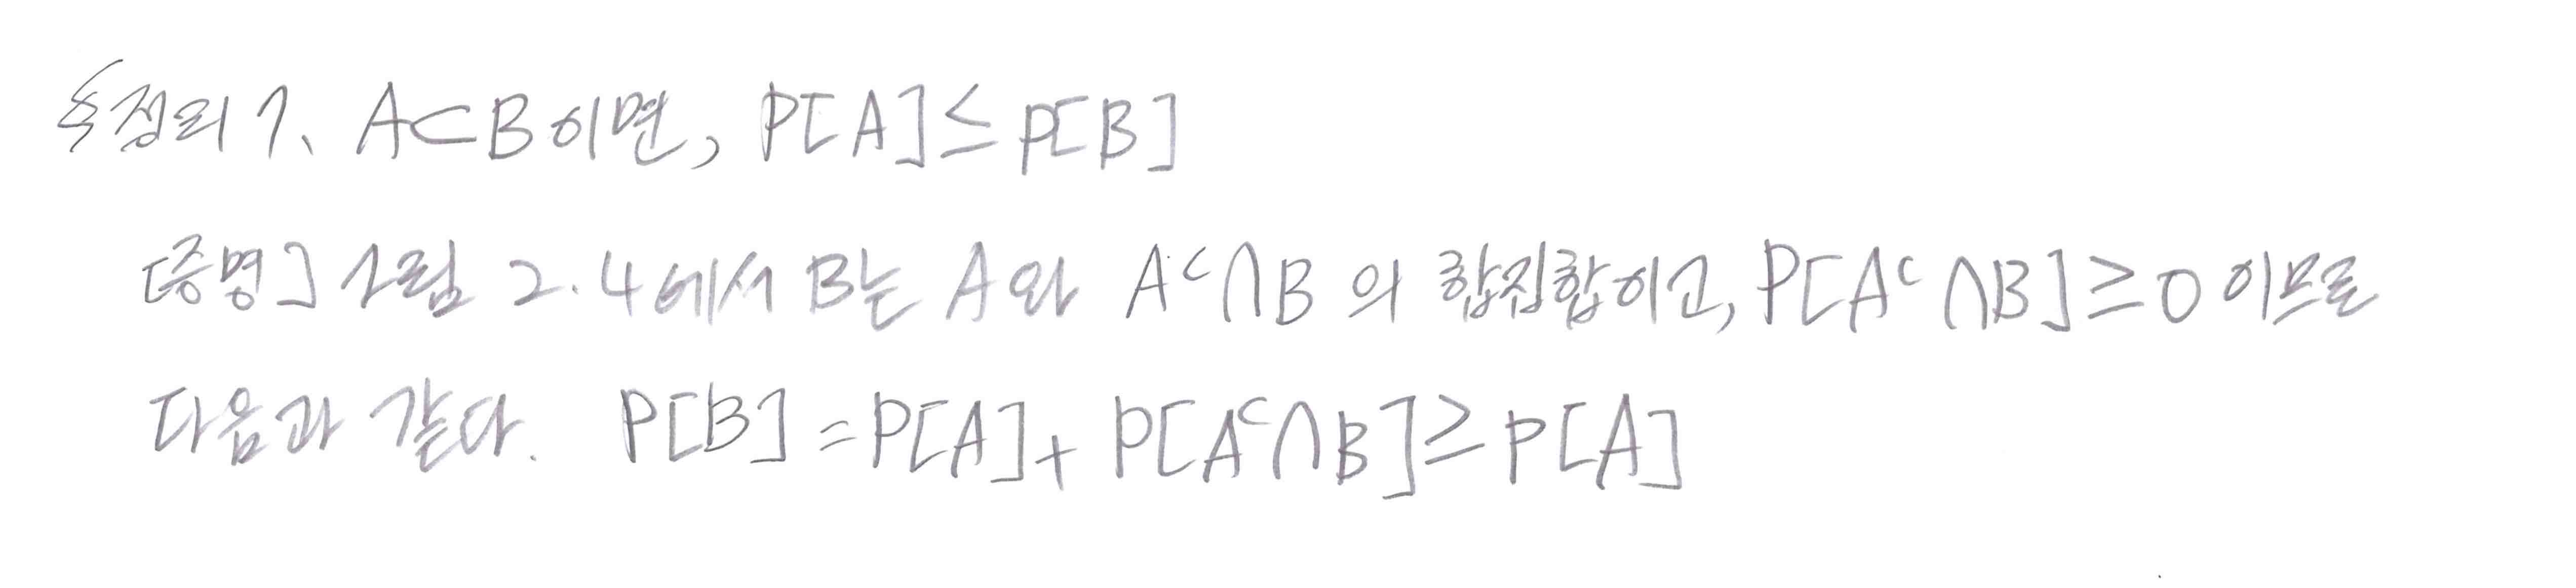 증정리 7. A⊂B이면, P[A]≤P[B]
[증명] 그림 2.4에서 B는 A와 Aᶜ∩B의 합집합이고, P[Aᶜ∩B]≥0이므로
다음과 같다. P[B]=P[A]+P[Aᶜ∩B]≥P[A]